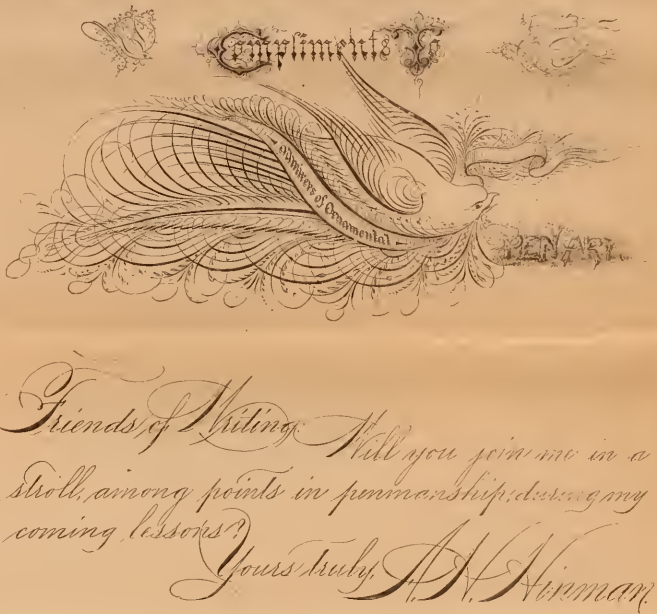 Compliments To
Admirers of Ornamental
PEN ART
Friends of Writing: Will you join me in a
stroll, among points in penmanship, during my
coming lessons?
Yours truly, A. H. Hinman.